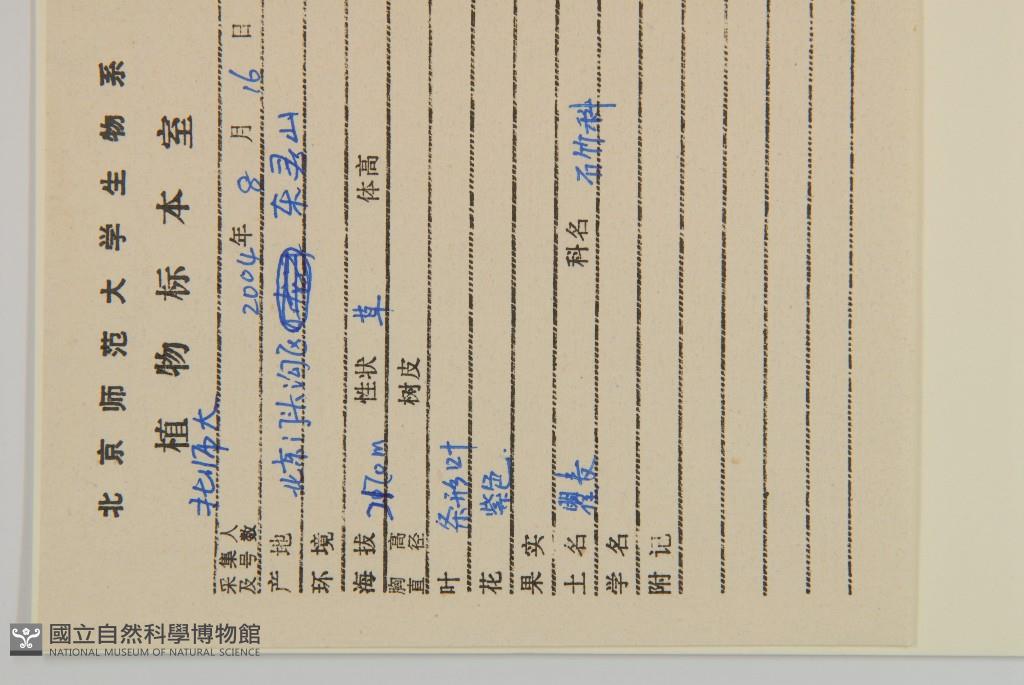 北京师范大学生物系
植物标本室
采集人及号数 北师大 2004年8月16日
产地 北京门头沟区 东灵山
环境
海拔 性状 草 体高
胸高直径 树皮
叶 条形叶
花 紫色.
果实
土名 瞿麦 科名 石竹科
学名
附记
國立自然科學博物館
NATIONAL MUSEUM OF NATURAL SCIENCE